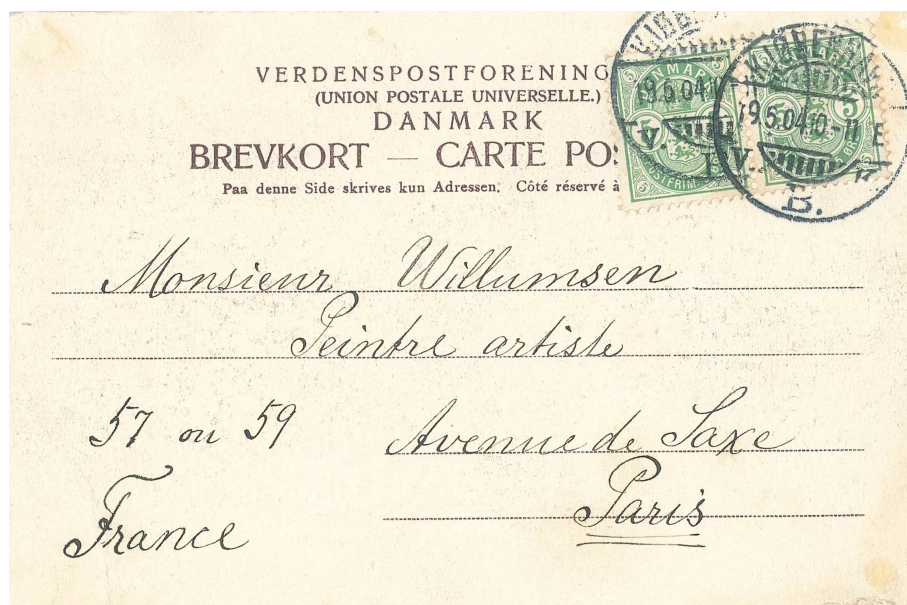 VERDENSPOSTFORENING
(UNION POSTALE UNIVERSELLE.)
DANMARK
BREVKORT — CARTE POS
Paa denne Side skrives kun Adressen. Côté réservé à
DANMARK
5 5
POSTFRIM.
19.5.04
KJØBENHAVN
19.5.04.10-11 E
B.
Monsieur Willumsen
Peintre artiste
57 ou 59 Avenue de Saxe
Paris
France